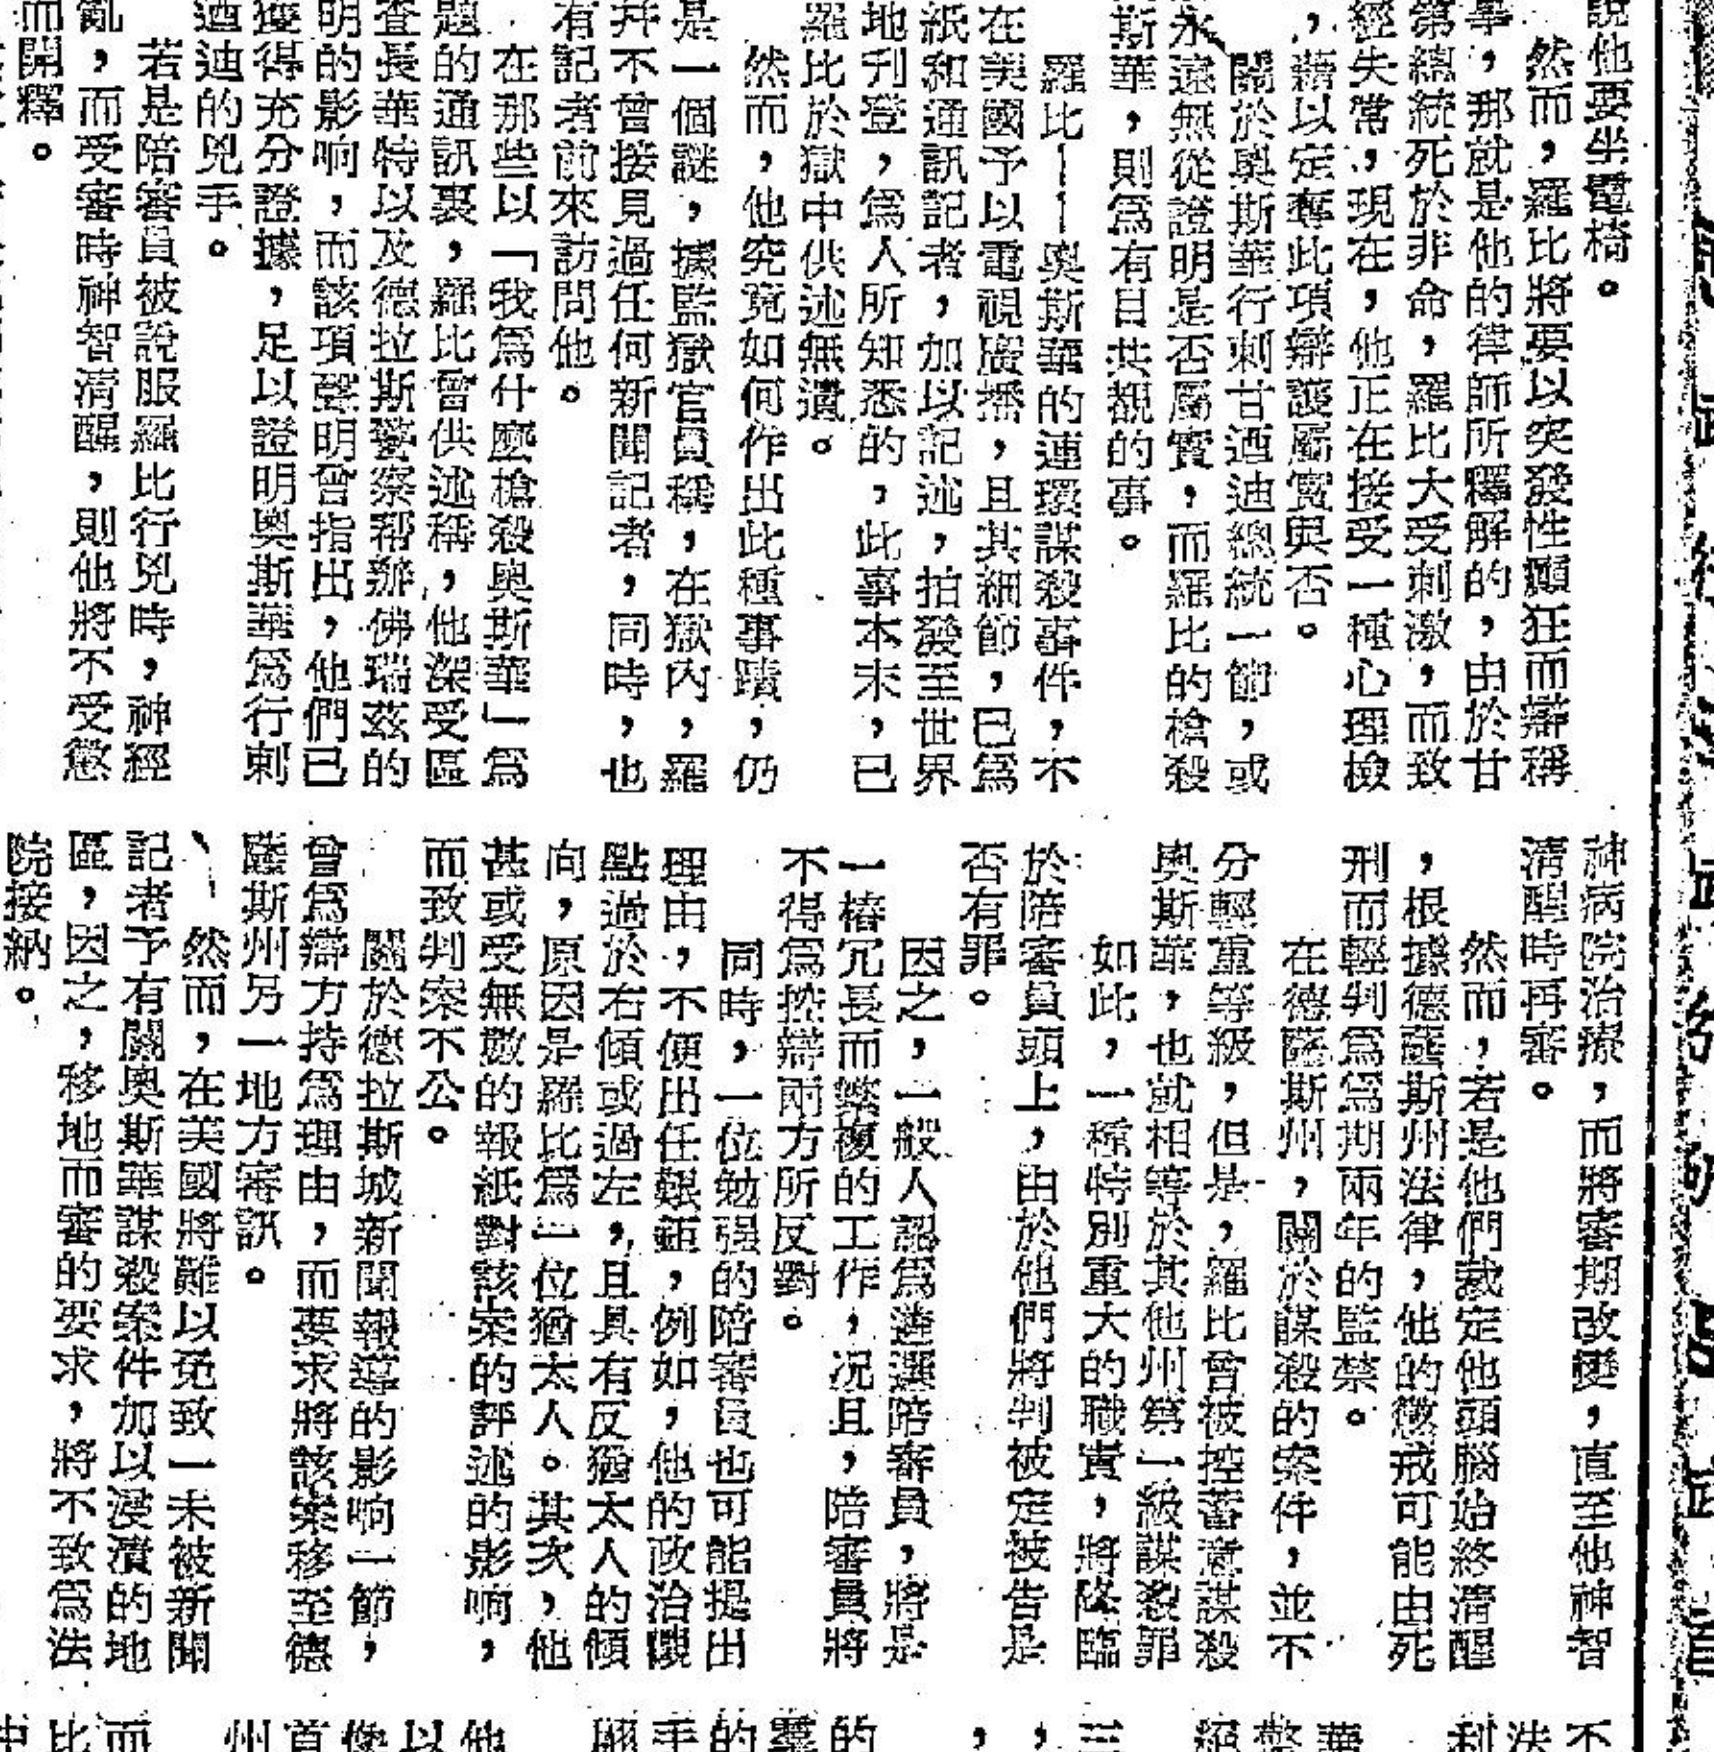 說他要坐電椅。
然而，羅比將要以突發性癲狂而辯稱
舉，那就是他的律師所釋解的，由於甘
第總統死於非命，羅比大受刺激，而致
經失常，現在，他正在接受一種心理檢
，藉以定奪此項辯護屬實與否。
關於奧斯華行刺甘迺迪總統一節，或
永遠無從證明是否屬實，而羅比的槍殺
斯華，則爲有目共覩的事。
羅比——奧斯華的連環謀殺事件，不
在美國予以電視廣播，且其細節，已爲
紙和通訊記者，加以記述，拍發至世界
地刋登，爲人所知悉的，此事本末，已
羅比於獄中供述無遺。
然而，他究竟如何作出此種事蹟，仍
是一個謎，據監獄官員稱，在獄內，羅
幷不曾接見過任何新聞記者，同時，也
有記者前來訪問他。
在那些以「我爲什麼槍殺奧斯華」爲
題的通訊裏，羅比曾供述稱，他深受區
查長華特以及德拉斯警察帮辦佛瑞茲的
明的影响，而該項聲明曾指出，他們已
獲得充分證據，足以證明奧斯華爲行刺
迺迪的兇手。
若是陪審員被說服羅比行兇時，神經
亂，而受審時神智清醒，則他將不受懲
而開釋。
神病院治療，而將審期改變，直至他神智
清醒時再審。
然而，若是他們裁定他頭腦始終清醒
，根據德薩斯州法律，他的懲戒可能由死
刑而輕判爲爲期兩年的監禁。
在德薩斯州，關於謀殺的案件，並不
分輕重等級，但是，羅比曾被控蓄意謀殺
奧斯華，也就相等於其他州第一級謀殺罪
如此，一種特別重大的職責，將降臨
於陪審員頭上，由於他們將判被定被告是
否有罪。
因之，一般人認爲遴選陪審員，將是
一樁冗長而繁複的工作，況且，陪審員將
不得爲控辯兩方所反對。
同時，一位勉强的陪審員也可能提出
理由，不便出任艱鉅，例如，他的政治觀
點過於右傾或過左，且具有反猶太人的傾
向，原因是羅比爲一位猶太人。其次，他
甚或受無數的報紙對該案的評述的影响，
而致判案不公。
關於德拉斯城新聞報導的影响一節，
曾爲辯方持爲理由，而要求將該案移至德
薩斯州另一地方審訊。
然而，在美國將難以免致一未被新聞
記者予有關奧斯華謀殺案件加以浸漬的地
區，因之，移地而審的要求，將不致爲法
院接納。